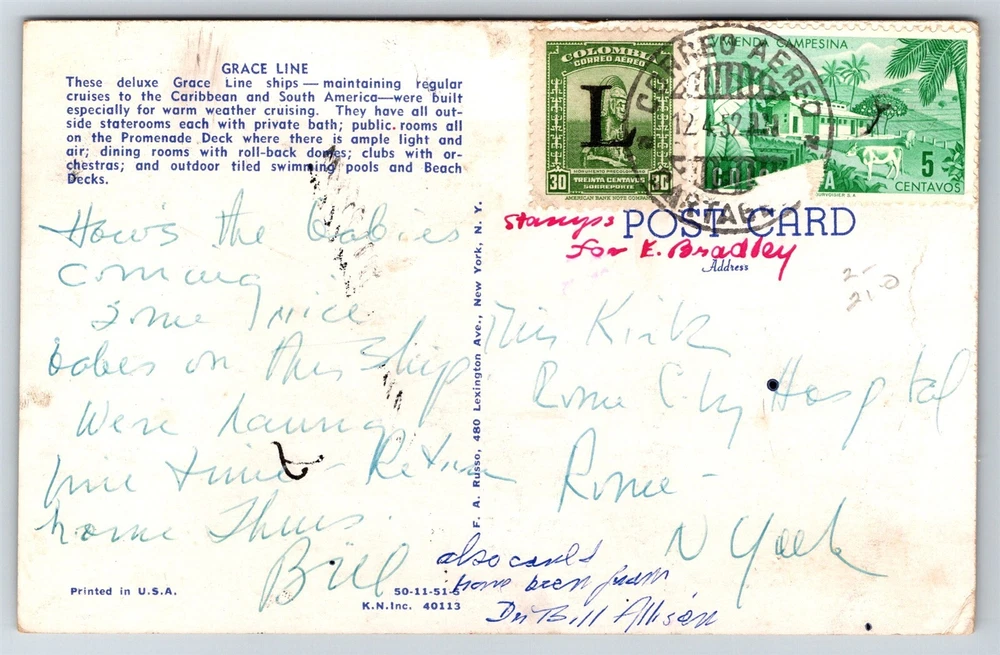 GRACE LINE
These deluxe Grace Line ships — maintaining regular
cruises to the Caribbean and South America—were built
especially for warm weather cruising. They have all out-
side staterooms each with private bath; public rooms all
on the Promenade Deck where there is ample light and
air; dining rooms with roll-back domes; clubs with or-
chestras; and outdoor tiled swimming pools and Beach
Decks.
How's the babies
coming
Some nice
babes on this ship
Were having
fine time - Return
home Thurs.
Bill
Printed in U.S.A.
50-11-51-S
K.N.Inc. 40113
F. A. Russo, 480 Lexington Ave., New York, N. Y.
COLOMBIA
CORREO AEREO
L
MONUMENTO PRECOLOMBINO
30 TREINTA CENTAVOS 30
SOBREPORTE
AMERICAN BANK NOTE COMPANY
VIVIENDA CAMPESINA
5
CENTAVOS
A
COURVOISIER S.A.
CORREO AEREO
12.4.52
Stamps
for E. Bradley
POST CARD
Address
21-0
Miss Kirk
Rome City Hospital
Rome -
N York
also could
have been from
Dr Bill Allison